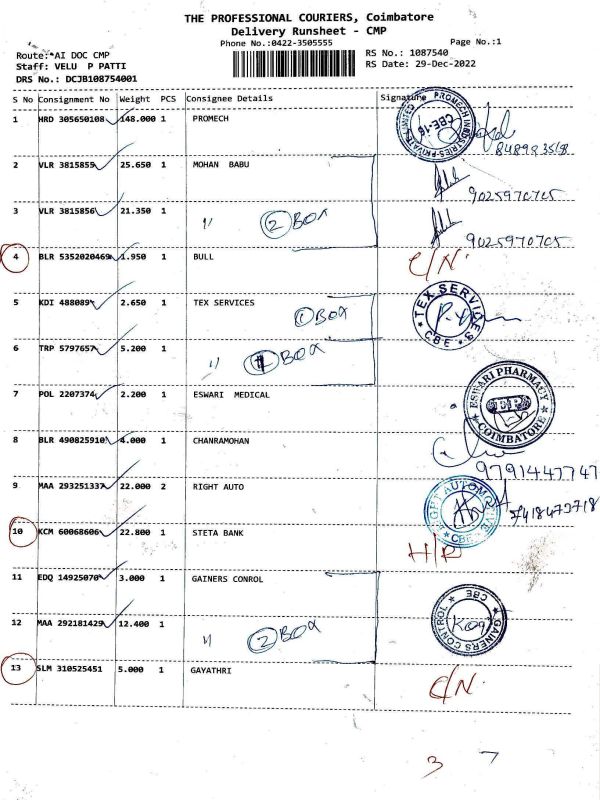 THE PROFESSIONAL COURIERS, Coimbatore
Delivery Runsheet - CMP
Phone No.:0422-3505555
Page No.:1
Route:*AI DOC CMP
RS No.: 1087540
Staff: VELU P PATTI
RS Date: 29-Dec-2022
DRS No.: DCJB108754001
S No Consignment No Weight PCS Consignee Details Signature
1 HRD 305650108 148.000 1 PROMECH
PROMECH INDUSTRIES PRIVATE LIMITED CBE-16
2 VLR 3815855 25.650 1 MOHAN BABU
9025970705
3 VLR 3815856 21.350 1 " 2 BOX
9025970705
4 BLR 5352020469 1.950 1 BULL C/N.
5 KDI 488089 2.650 1 TEX SERVICES 1 BOX
TEX SERVICES CBE
6 TRP 5797657 5.200 1 " 1 BOX
7 POL 2207374 2.200 1 ESWARI MEDICAL
ESWARI PHARMACY EP COIMBATORE
8 BLR 490825910 4.000 1 CHANRAMOHAN
9791447747
9 MAA 293251337 22.000 2 RIGHT AUTO
RIGHT AUTOMOTIVE CBE
7418472718
10 KCM 60068606 22.800 1 STETA BANK
11 EDQ 14925070 3.000 1 GAINERS CONROL
GAINERS CONTROL CBE
12 MAA 292181429 12.400 1 " 2 BOX
13 SLM 310525451 5.000 1 GAYATHRI C/N.
3 7